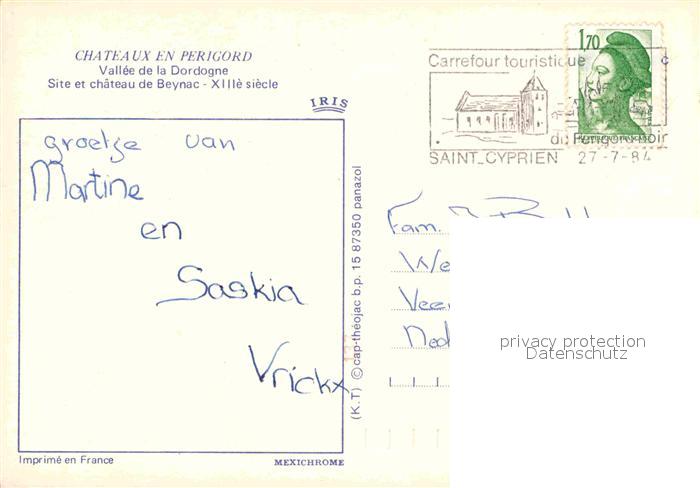 CHATEAUX EN PERIGORD
Vallée de la Dordogne
Site et château de Beynac - XIIIè siècle
IRIS
groetje van
Martine
en
Saskia
Vrickx
Imprimé en France
MEXICHROME
(K.T) © cap-théojac b.p. 15 87350 panazol
Carrefour touristique
du Périgord noir
SAINT_CYPRIEN 27-7-84
1,70
Fam.
We
Veer
Ned
privacy protection
Datenschutz